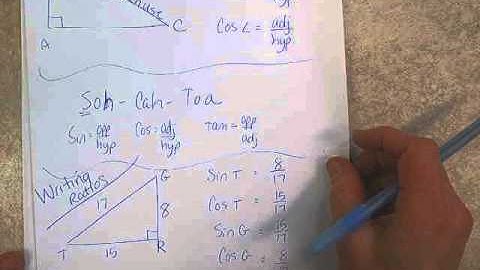 A
C
Cos L = adj/hyp
Soh - Cah - Toa
Sin = opp/hyp Cos = adj/hyp Tan = opp/adj
Writing Ratios
G
17
8
T 15 R
Sin T = 8/17
Cos T = 15/17
Sin G = 15/17
Cos G = 8